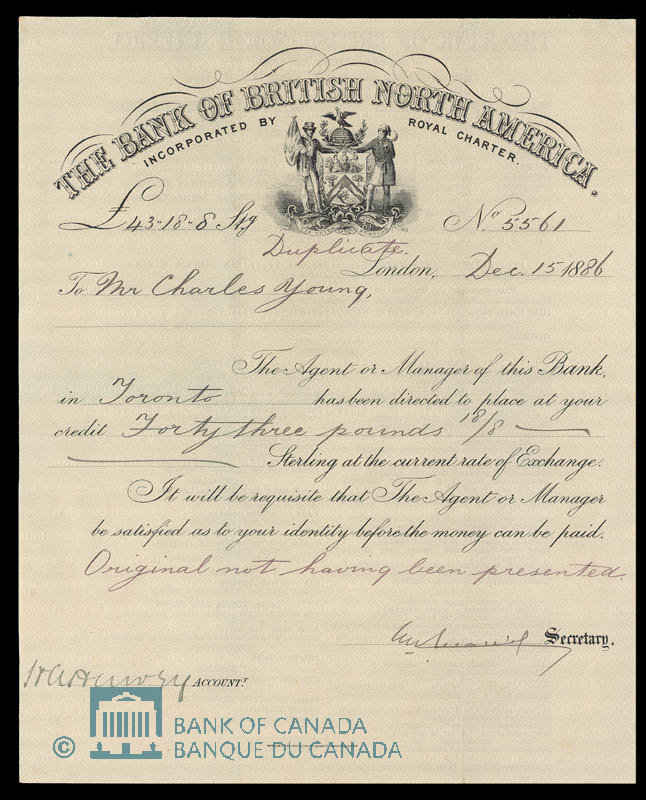 THE BANK OF BRITISH NORTH AMERICA.
INCORPORATED BY ROYAL CHARTER.
£43-18-8 Stg Nº 5561
Duplicate.
London, Dec. 15 1886
To Mr Charles Young,
The Agent or Manager of this Bank,
in Toronto has been directed to place at your
credit Forty three pounds 18/8
Sterling at the current rate of Exchange.
It will be requisite that The Agent or Manager
be satisfied as to your identity before the money can be paid.
Original not having been presented.
Secretary.
ACCOUNT.T
© BANK OF CANADA
BANQUE DU CANADA